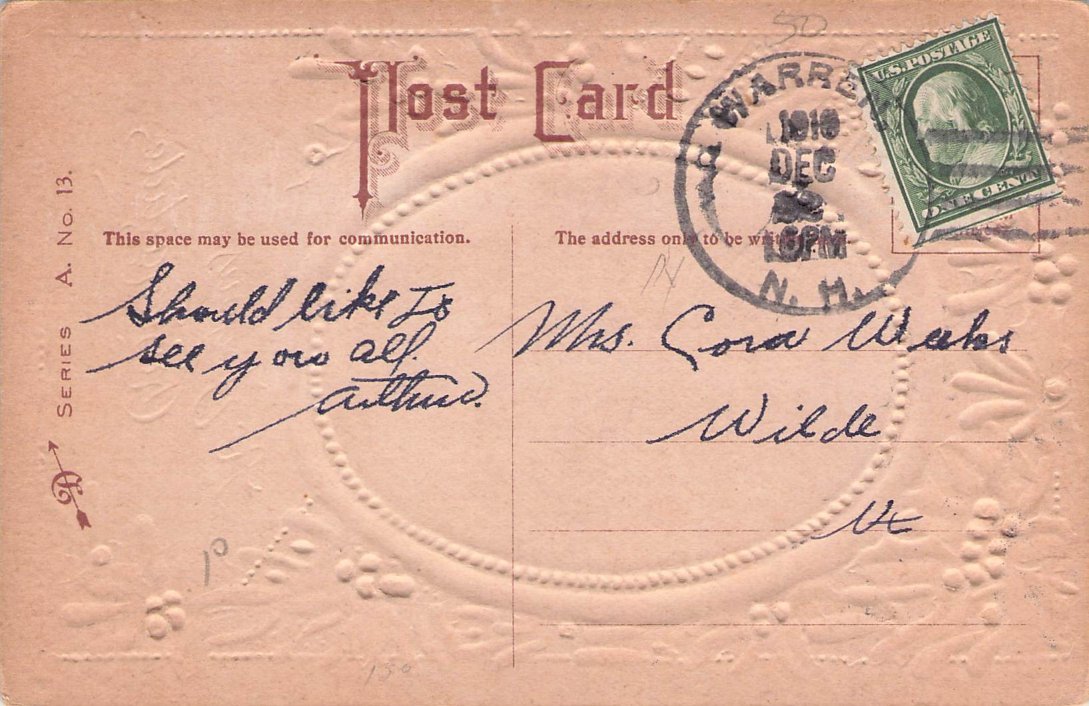 50
Post Card
WARREN
1910
DEC
6PM
N. H.
U.S. POSTAGE
ONE CENT
SERIES A. No. 13.
This space may be used for communication.
The address only to be
Should like to
see you all.
Arthur.
Mrs. Cora Weeks
Wilde
Vt
10
130